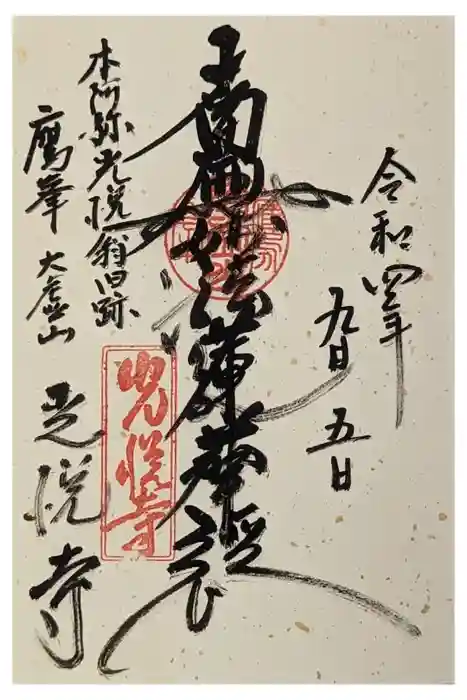 令和四年
九月五日
南無妙法蓮華経
本阿弥光悦翁旧跡
鷹峯 大虚山
光悦寺
光悦寺